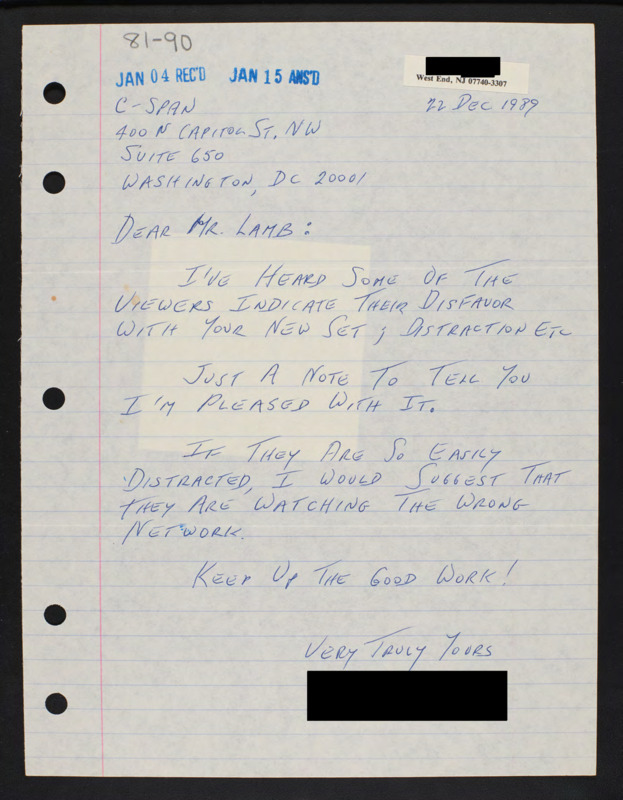 81-90
JAN 04 REC'D JAN 15 ANS'D
West End, NJ 07740-3307
C-SPAN
22 DEC 1989
400 N CAPITOL ST. NW
SUITE 650
WASHINGTON, DC 20001
DEAR MR. LAMB:
I'VE HEARD SOME OF THE
VIEWERS INDICATE THEIR DISFAVOR
WITH YOUR NEW SET; DISTRACTION ETC
JUST A NOTE TO TELL YOU
I'M PLEASED WITH IT.
IF THEY ARE SO EASILY
DISTRACTED, I WOULD SUGGEST THAT
THEY ARE WATCHING THE WRONG
NETWORK.
KEEP UP THE GOOD WORK!
VERY TRULY YOURS